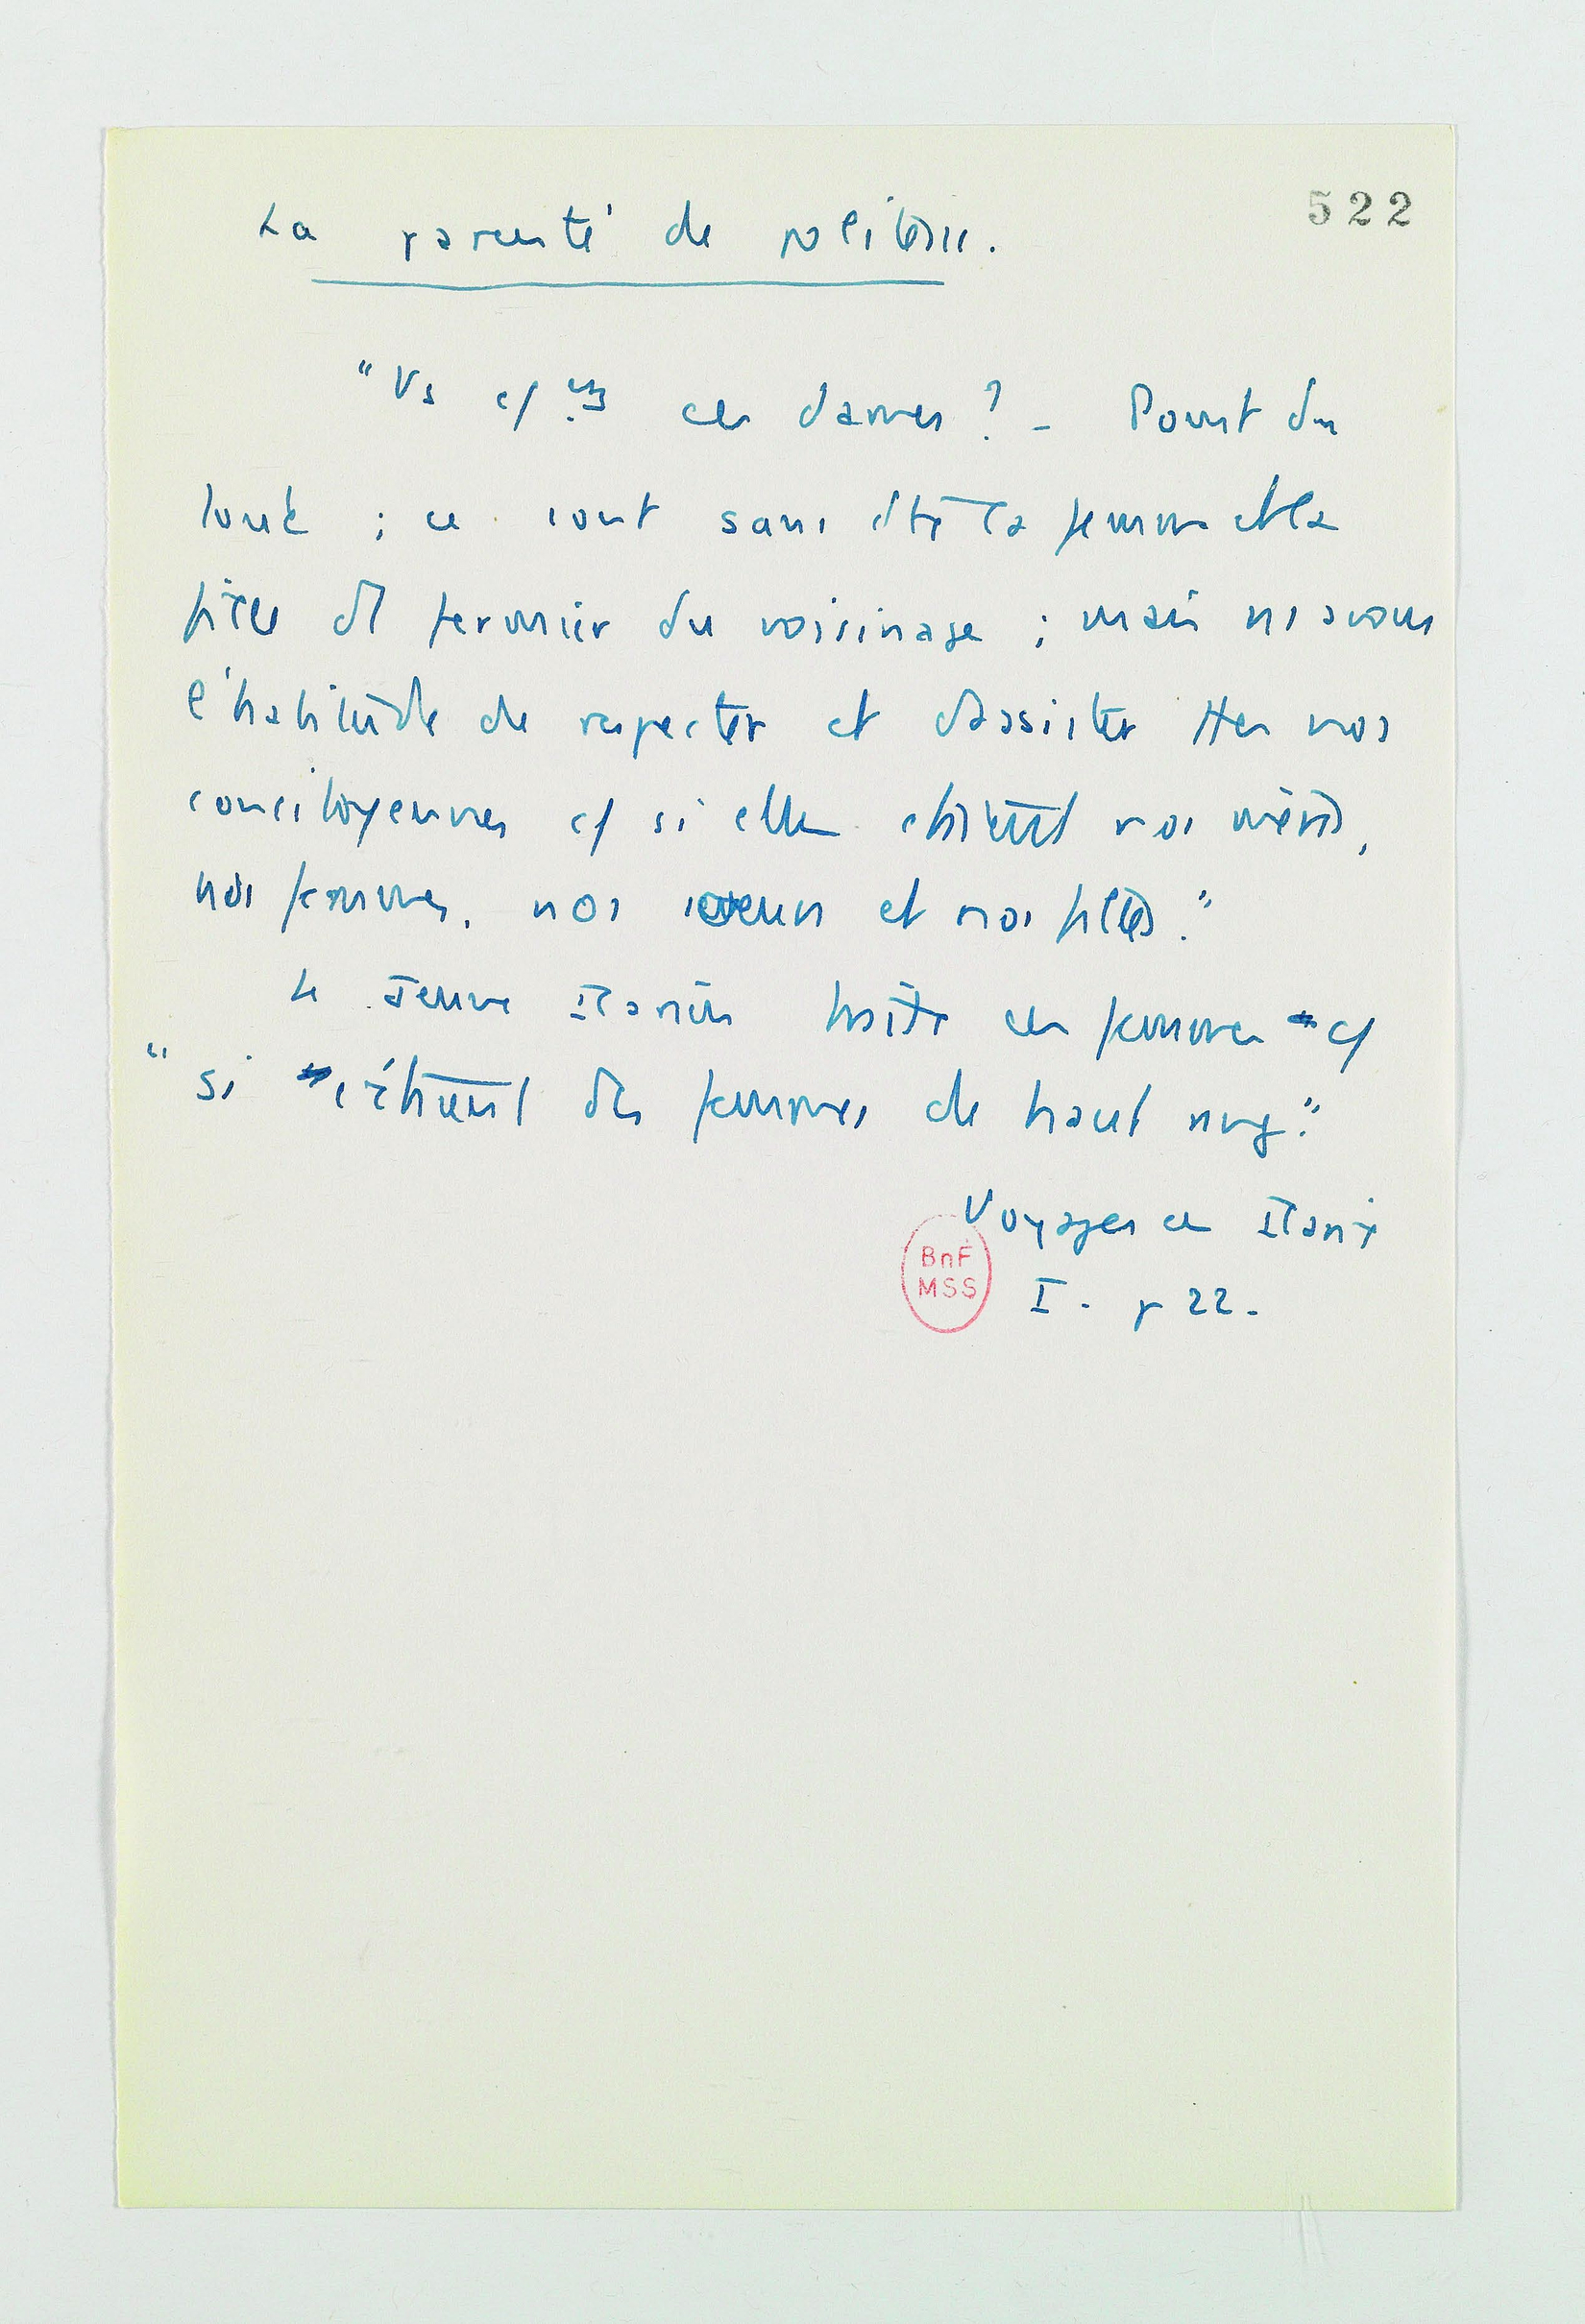 522
La parenté de politesse.
"Vs ces dames ? - Point du
tout ; ce sont sans doute la femme et la
fille d'1 fermier du voisinage ; mais ns avons
l'habitude de respecter et d'assister ttes nos
concitoyennes c/ si elles étaient nos mères,
nos femmes, nos soeurs et nos filles."
Le Jeune Icarien traite ces femmes c/
"si c'étaient des femmes de haut rang."
Voyage en Icarie
BnF
MSS
I. p 22.